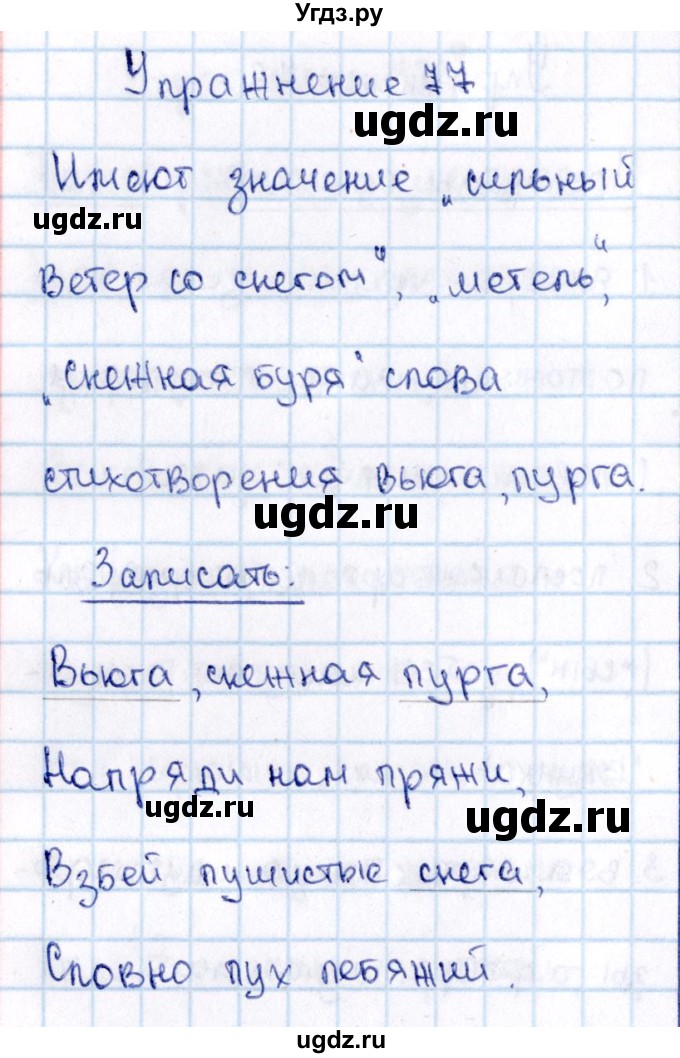 Угдз.ру
Упражнение 77
ugdz.ru
Имеют значение „сильный
ugdz.ru
ветер со снегом“, „метель“,
„снежная буря“ слова
стихотворения вьюга, пурга.
ugdz.ru
Записать:
Вьюга, снежная пурга,
Напряди нам пряжи,
ugdz.ru
ugdz.ru
Взбей пушистые снега,
Словно пух лебяжий.
ugdz.ru
ugdz.ru
ugdz.ru